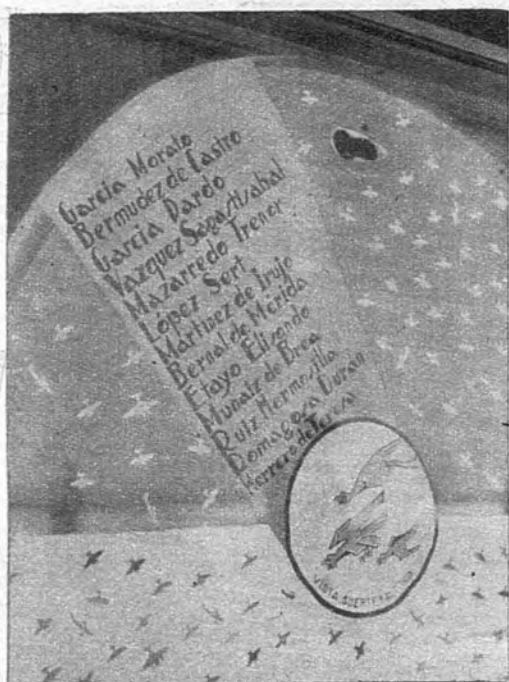 García Morato
Bermudez de Castro
García Pardo
Vazquez Sagastizabal
Mazarredo Trenor
López Sert
Martinez de Irujo
Bernal de Mérida
Etayo Elizondo
Munaiz de Brea
Ruiz Hermosilla
Domagoza Duran
Herrero de Teresa
VISTA SUERTE Y